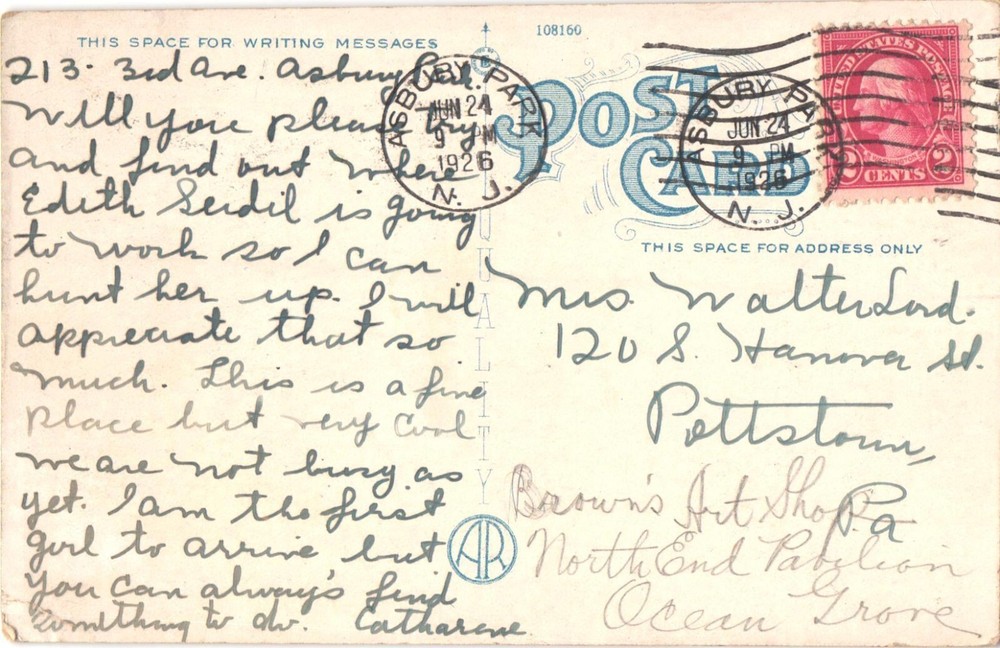 THIS SPACE FOR WRITING MESSAGES
108160
213- 3rd Ave. Asbury Park.
Will you please try
and find out where
Edith Seidil is going
to work so I can
hunt her up. I will
appreciate that so
much. This is a fine
place but very cool
we are not busy as
yet. I am the first
girl to arrive but
you can always find
something to do. Catharine
ASBURY PARK
JUN 24
9 PM
1926
N. J.
POST
CARD
ASBURY PARK
JUN 24
9 PM
1926
N. J.
UNITED STATES POSTAGE
2 CENTS 2
THIS SPACE FOR ADDRESS ONLY
QUALITY
AR
Mrs. Walter Lord.
120 S. Hanover St.
Pottstown,
Pa
Brown's Art Shop
North End Pavilion
Ocean Grove